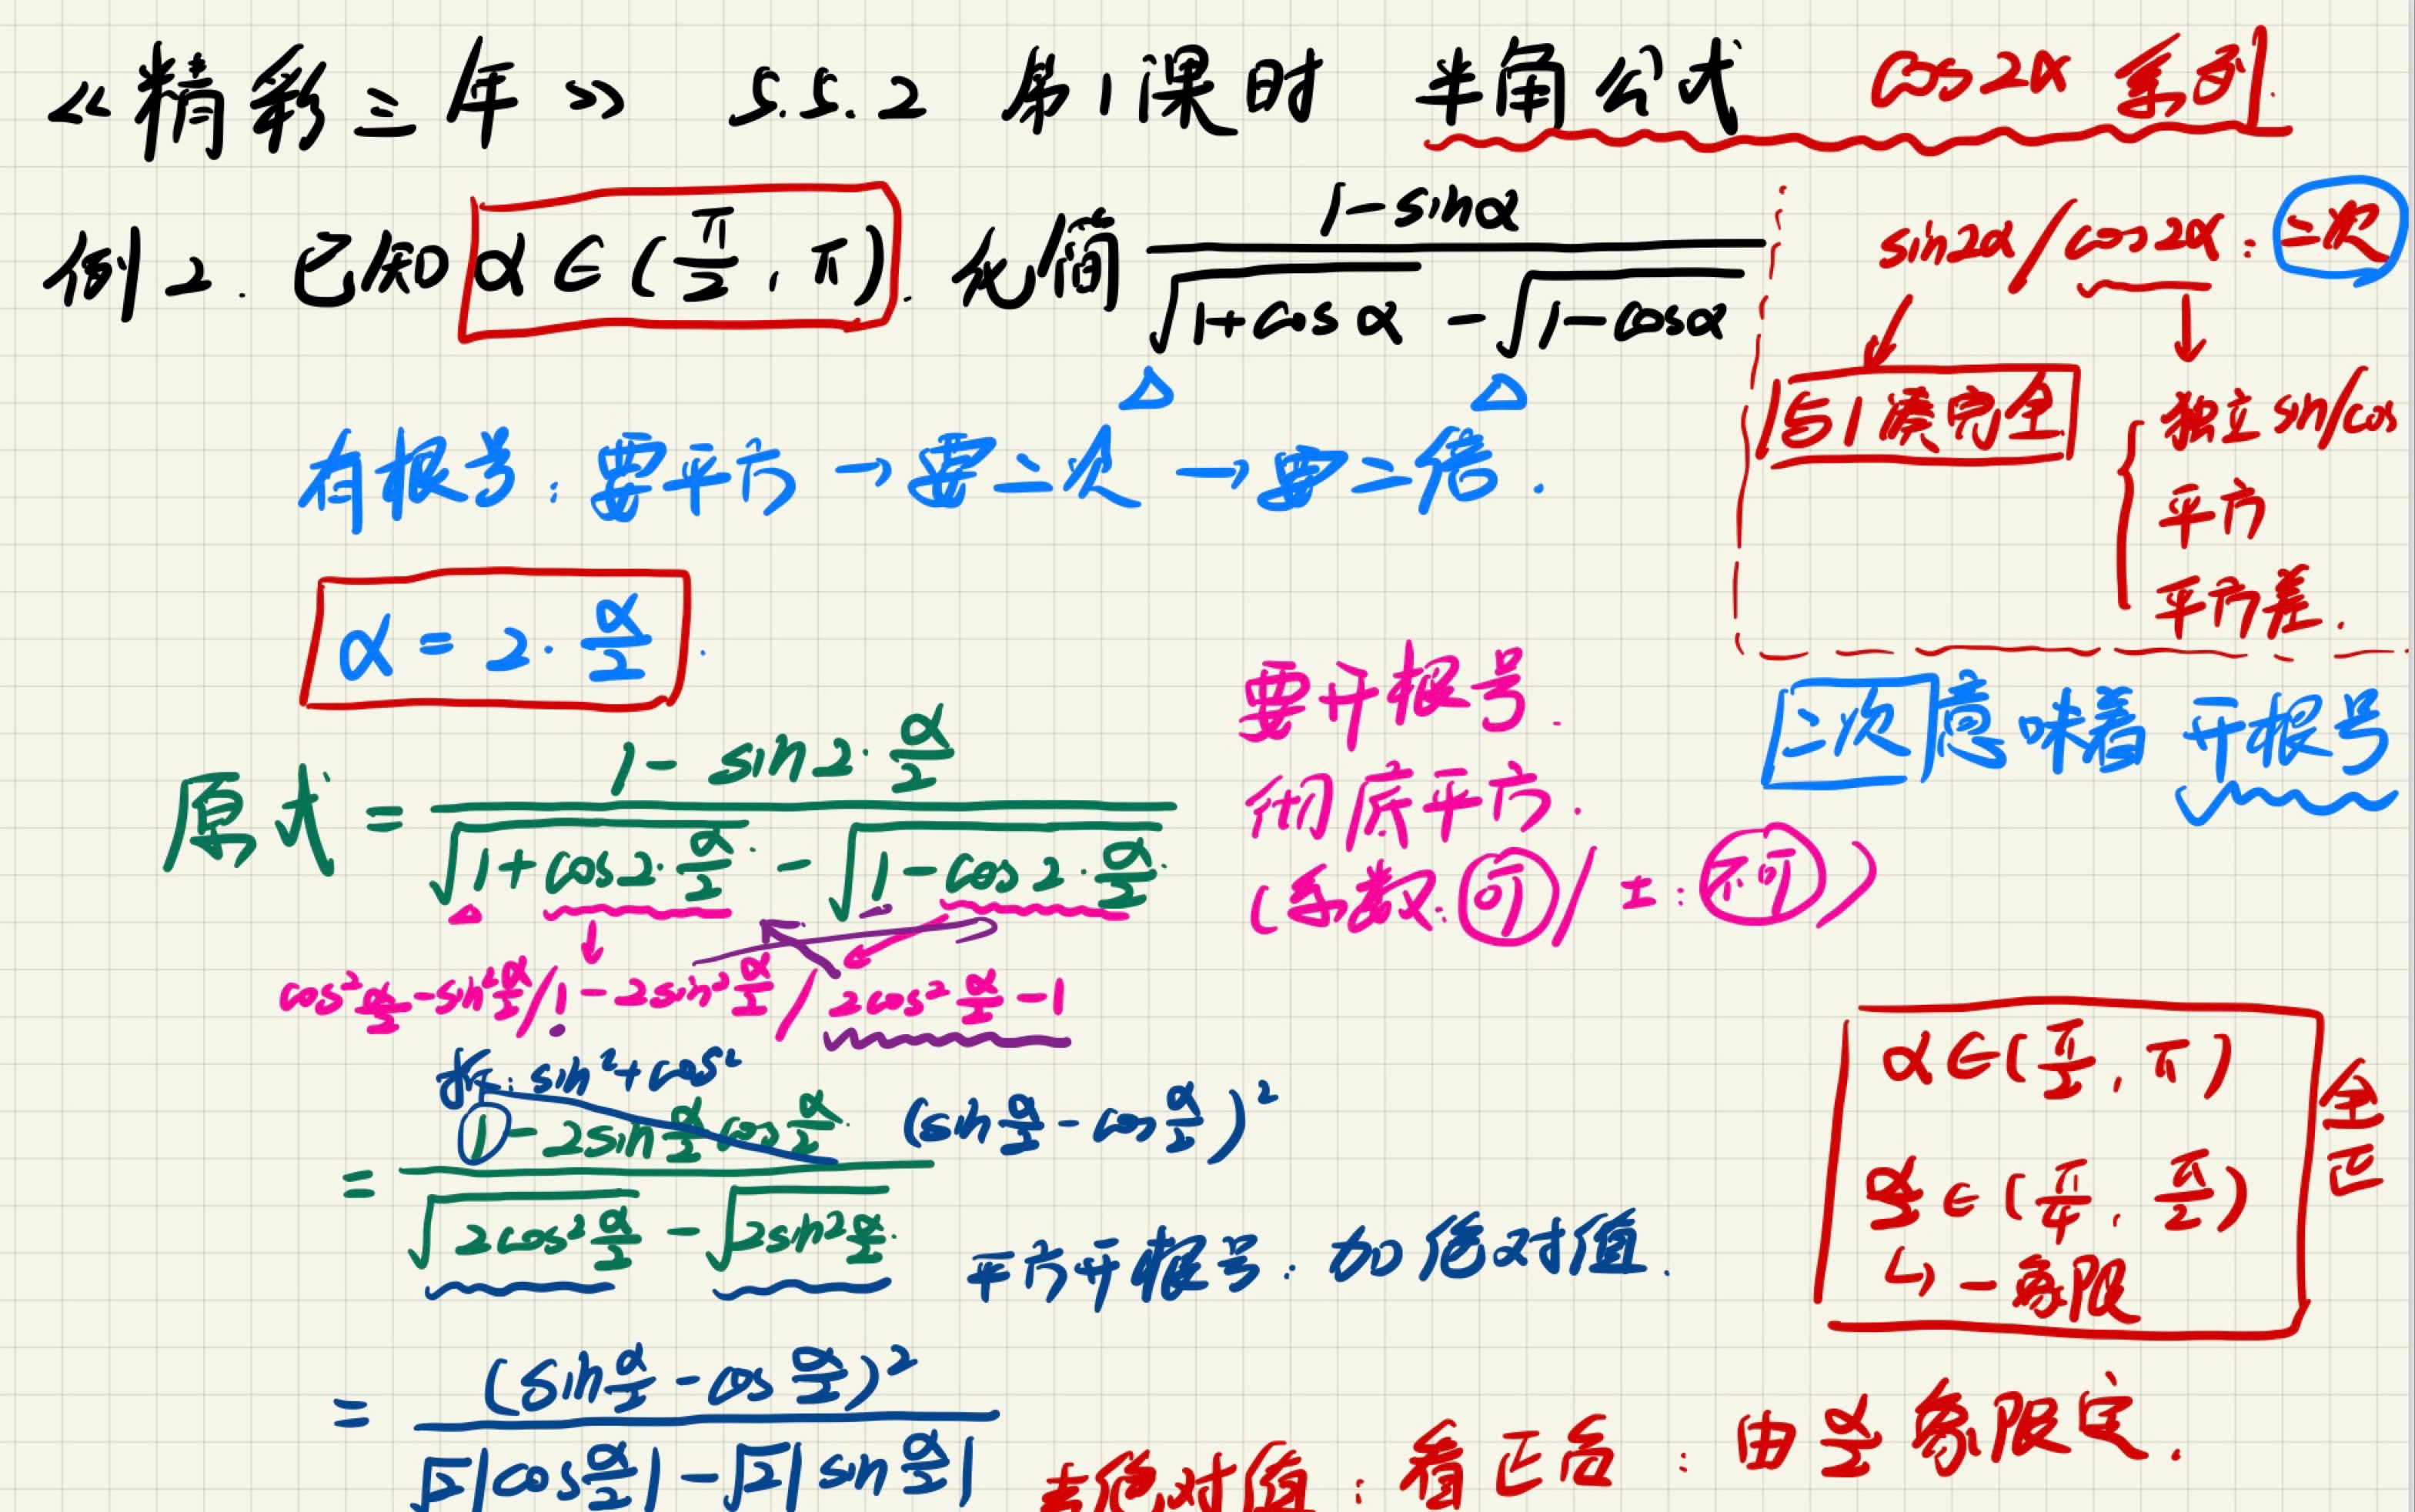 《精彩三年》 5.5.2 第1课时 半角公式 cos2α 系列.
例2. 已知 α∈(π/2, π). 化简 (1-sinα)/(√(1+cosα) - √(1-cosα))
sin2α/cos2α: 二次
与1凑完全
独立sin/cos
平方
平方差.
有根号: 要平方 → 要二次 → 要二倍.
α = 2·α/2.
二次意味着 开根号
要开根号.
彻底平方.
(系数: 可/ ±: 不可)
原式 = (1 - sin2·α/2)/(√(1+cos2·α/2) - √(1-cos2·α/2))
cos²α/2 - sin²α/2 / 1 - 2sin²α/2 / 2cos²α/2 - 1
拆: sin²+cos²
= (1 - 2sinα/2 cosα/2)/(√(2cos²α/2) - √(2sin²α/2))
(sinα/2 - cosα/2)²
平方开根号: 加绝对值.
α∈(π/2, π)
α/2 ∈ (π/4, π/2)
↳ 一象限
全正
= (sinα/2 - cosα/2)²/(√2|cosα/2| - √2|sinα/2|)
去绝对值: 看正负: 由α/2象限定.